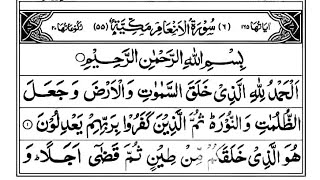 اٰیَاتُهَا ۱۶۵ (۶) سُوْرَةُ الْاَنْعَامِ مَكِّيَّةٌ (۵۵) رُكُوْعَاتُهَا ۲۰
بِسْمِ اللّٰهِ الرَّحْمٰنِ الرَّحِيْمِ
اَلْحَمْدُ لِلّٰهِ الَّذِيْ خَلَقَ السَّمٰوٰتِ وَالْاَرْضَ وَجَعَلَ
الظُّلُمٰتِ وَالنُّوْرَ ثُمَّ الَّذِيْنَ كَفَرُوْا بِرَبِّهِمْ يَعْدِلُوْنَ ۱
هُوَ الَّذِيْ خَلَقَكُمْ مِّنْ طِيْنٍ ثُمَّ قَضٰى اَجَلًا وَ